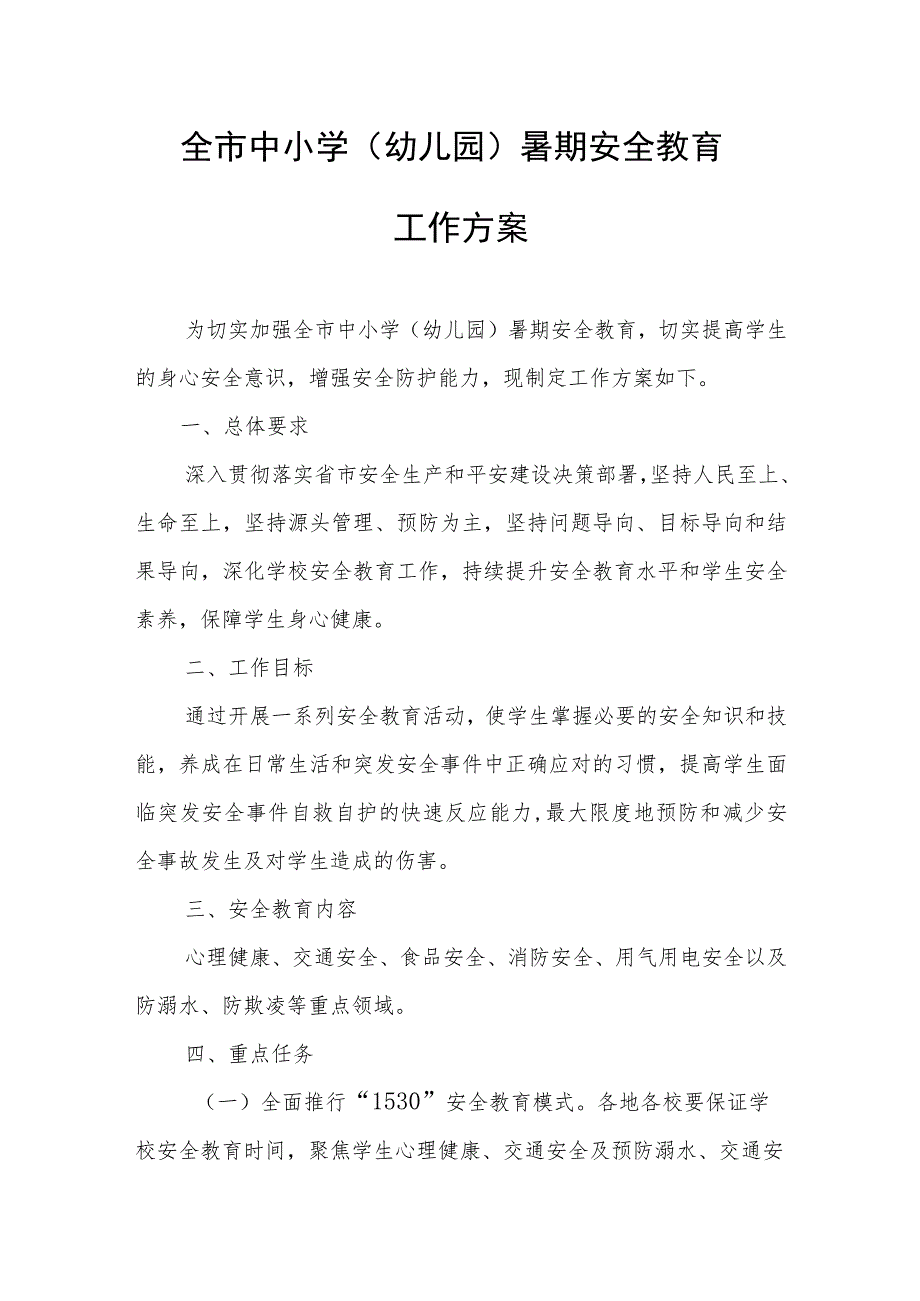 全市中小学（幼儿园）暑期安全教育
工作方案
为切实加强全市中小学（幼儿园）暑期安全教育，切实提高学生
的身心安全意识，增强安全防护能力，现制定工作方案如下。
一、总体要求
深入贯彻落实省市安全生产和平安建设决策部署,坚持人民至上、
生命至上，坚持源头管理、预防为主，坚持问题导向、目标导向和结
果导向，深化学校安全教育工作，持续提升安全教育水平和学生安全
素养，保障学生身心健康。
二、工作目标
通过开展一系列安全教育活动，使学生掌握必要的安全知识和技
能，养成在日常生活和突发安全事件中正确应对的习惯，提高学生面
临突发安全事件自救自护的快速反应能力,最大限度地预防和减少安
全事故发生及对学生造成的伤害。
三、安全教育内容
心理健康、交通安全、食品安全、消防安全、用气用电安全以及
防溺水、防欺凌等重点领域。
四、重点任务
（一）全面推行“1530”安全教育模式。各地各校要保证学
校安全教育时间，聚焦学生心理健康、交通安全及预防溺水、交通安